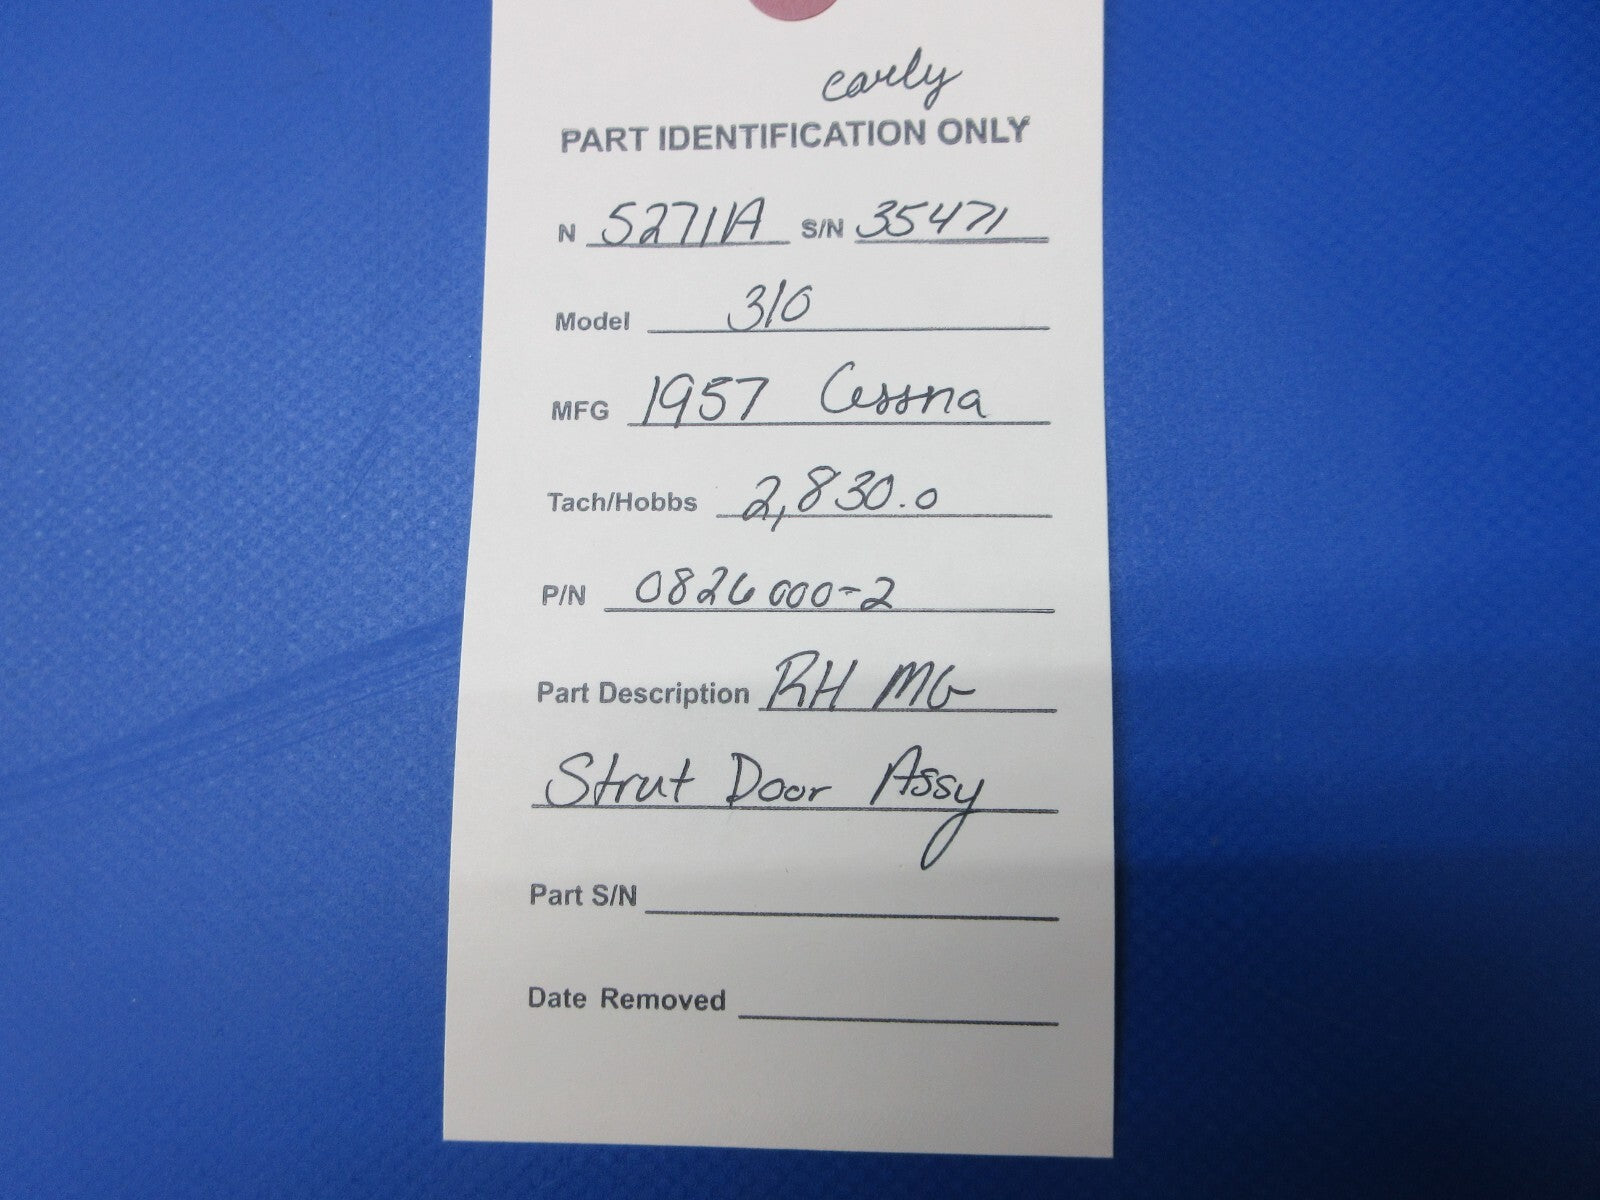 early
PART IDENTIFICATION ONLY
N 5271A S/N 35471
Model 310
MFG 1957 Cessna
Tach/Hobbs 2,830.0
P/N 0826000-2
Part Description RH MG
Strut Door Assy
Part S/N
Date Removed